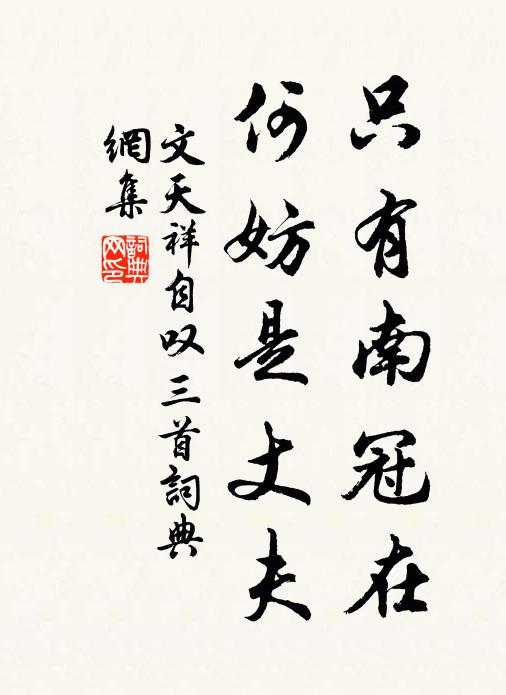 只有南冠在
何妨是丈夫
文天祥自叹三首詞典
網集
詞典网印